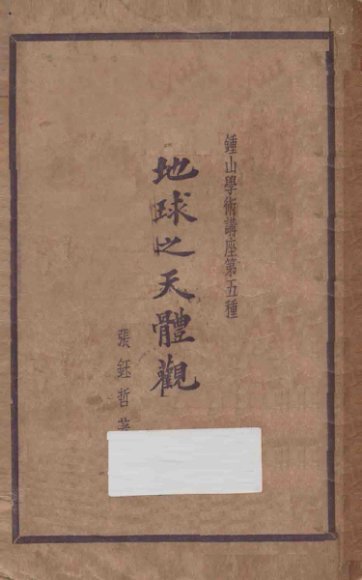 鍾山學術講座第五種
地球之天體觀
張鈺哲著